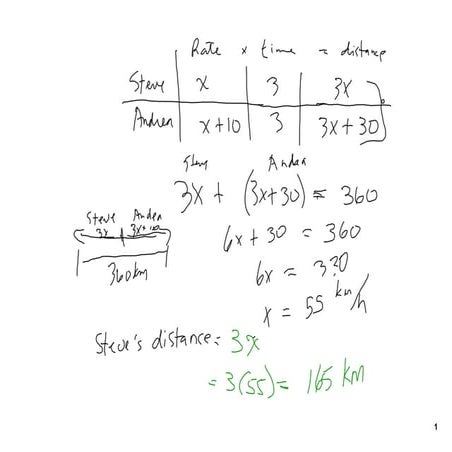 Rate × time = distance
Steve x 3 3x
Andrea x+10 3 3x+30
Steve Andrea
3x + (3x+30) = 360
Steve Andrea
3x
360km
6x + 30 = 360
6x = 330
x = 55 km/h
Steve's distance = 3x
= 3(55) = 165 km
1